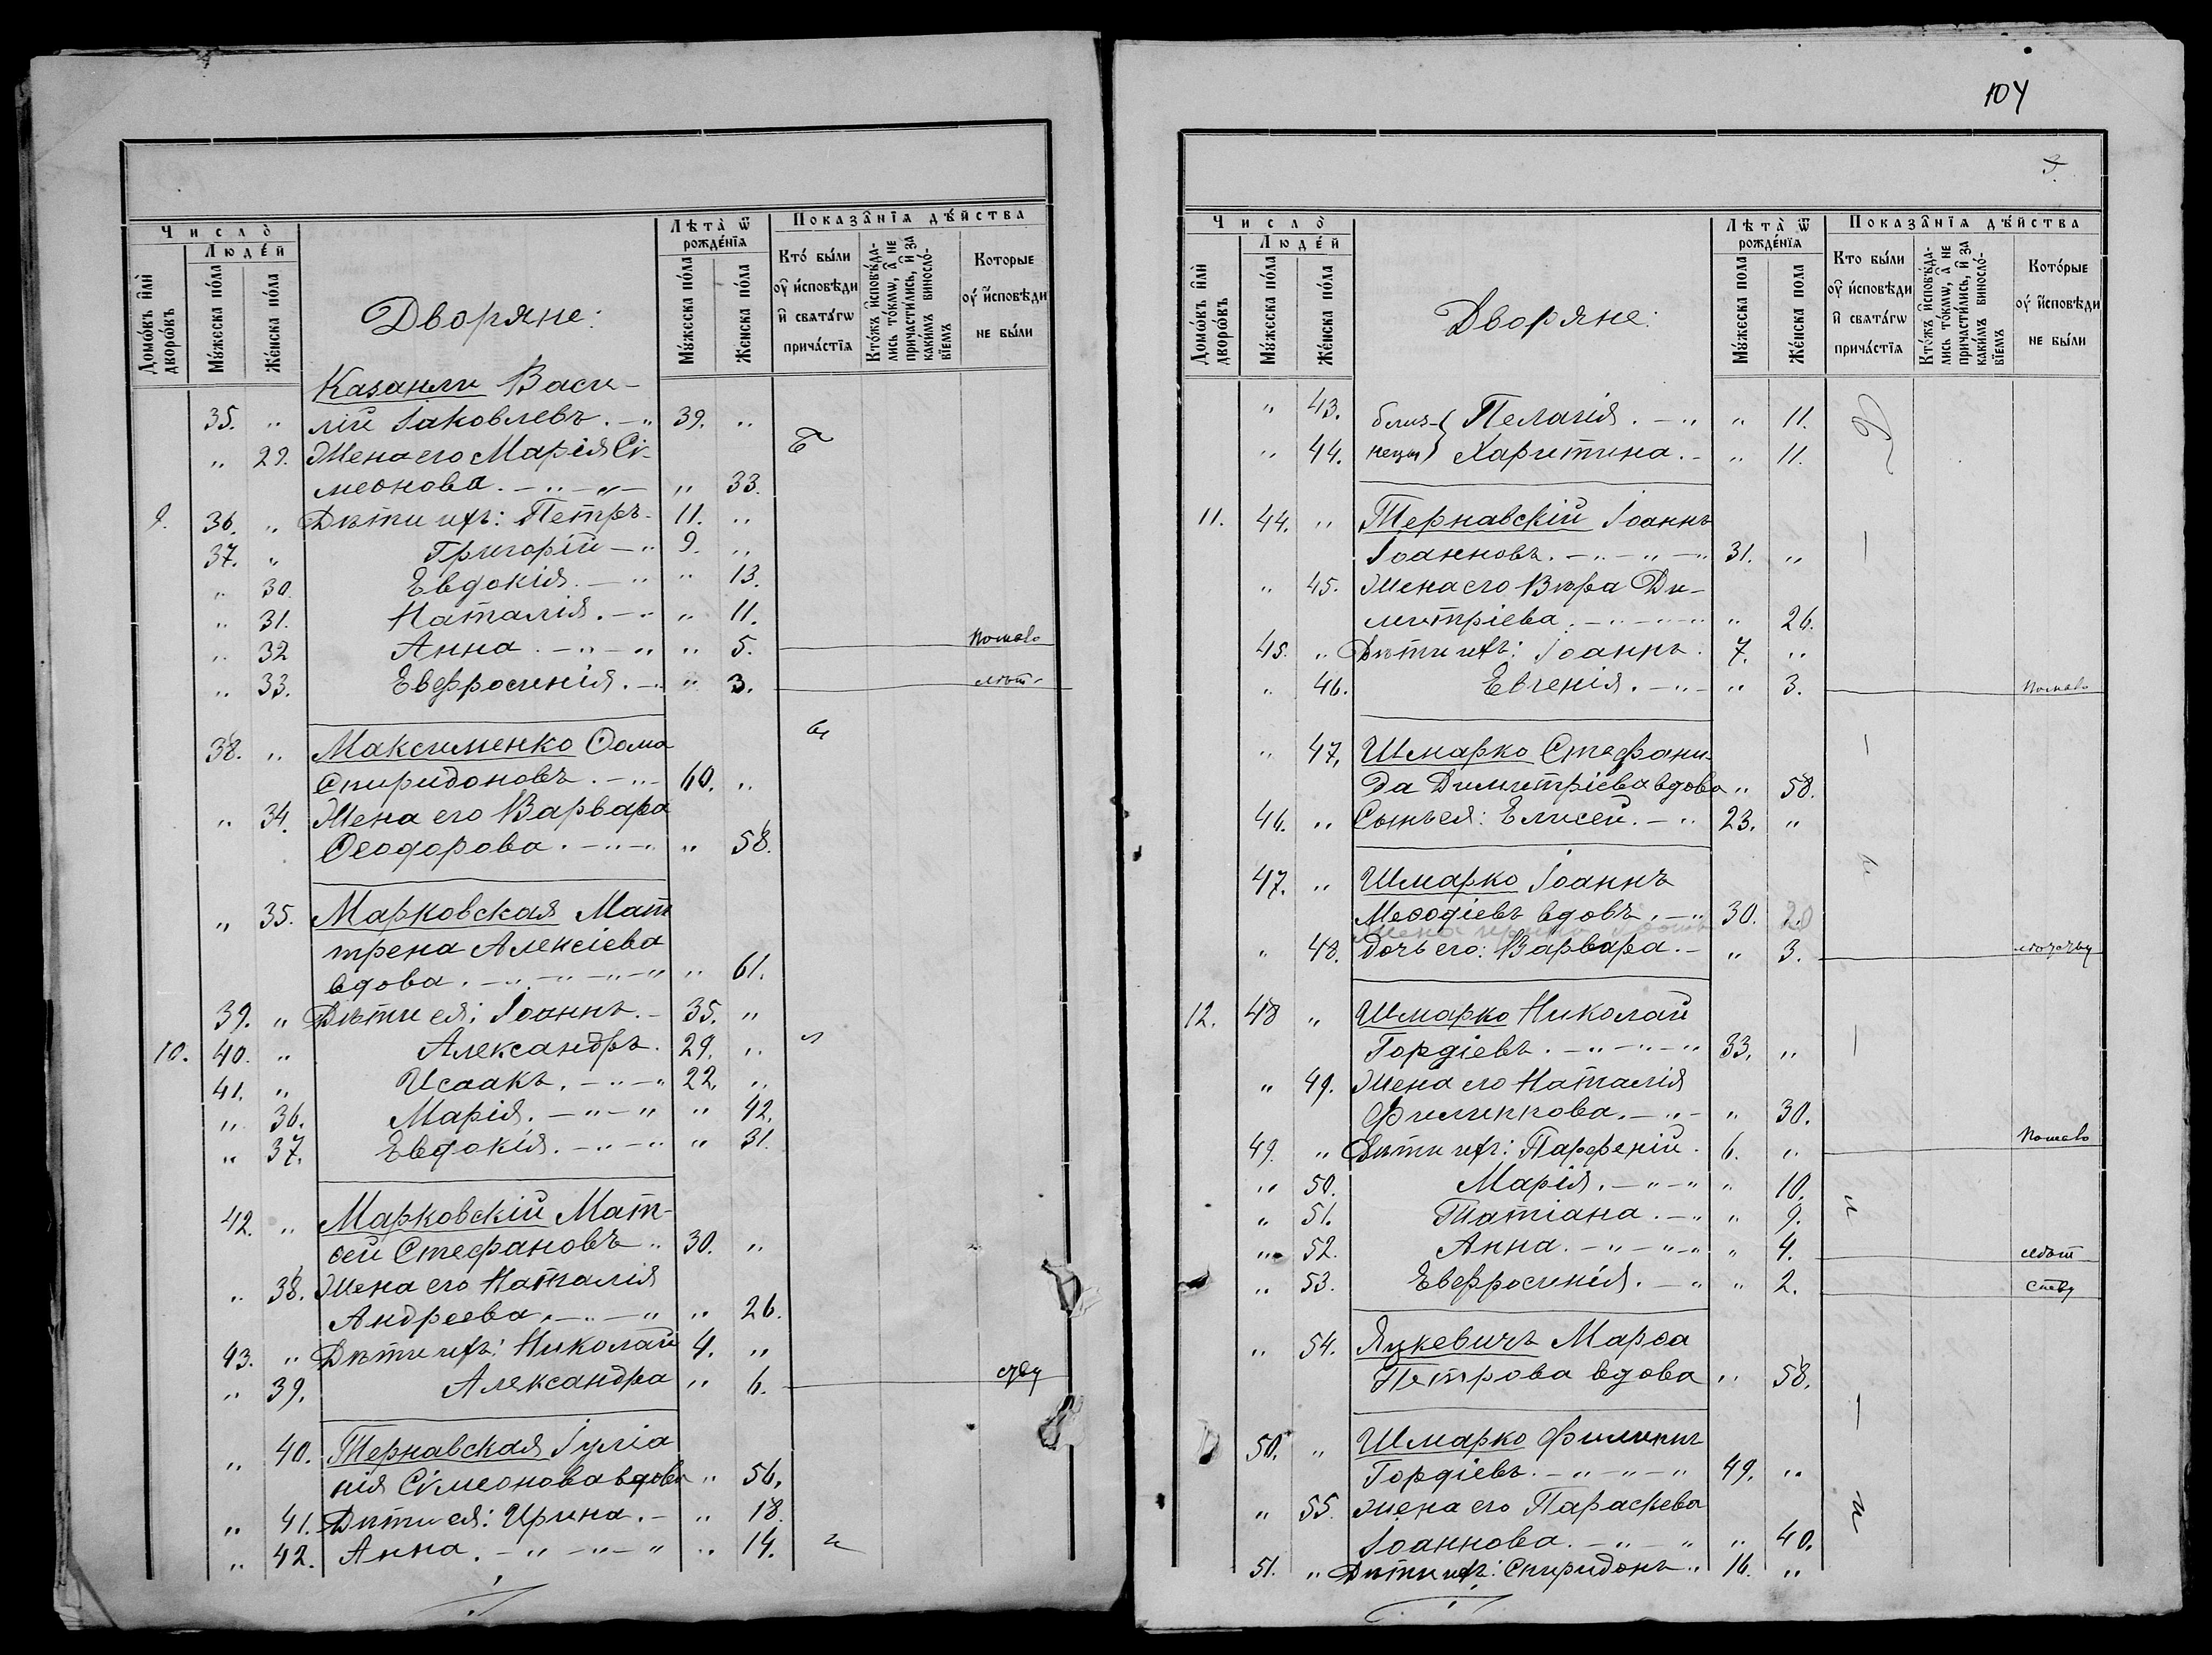 Число̀
Людéй
Лѣта̀ ѿ рождéнїѧ
Показа̂нїѧ дѣ́йства
Домóкъ и҆лѝ дворóкъ
Мꙋ́жеска пóла
Жéнска пóла
Мꙋ́жеска пóла
Жéнска пóла
Ктó бы́ли оу҆ и҆сповѣди и҆ свата́гѡ прича́стїѧ
Ктóжъ и҆сповѣда-лись тóкмѡ, а҆ не причасти́лись, и҆ за каки́мъ виносло́-вїемъ
Котóрые оу҆ и҆сповѣди не бы́ли
Дворяне:
Казанли Васи-
35. „ лій Іаковлевъ. - „ 39. „
„ 29. Жена его Марія Сі-
меонова. - „ - „ - „ 33.
9. 36. „ Дѣти ихъ: Петръ - 11. „
37. „ Григорій - „ 9. „
„ 30. Евдокія. - „ „ 13.
„ 31. Наталія. - „ „ 11.
„ 32 Анна. - „ - „ „ 5. помало
„ 33. Евфросинія. - „ 3. лѣт
38. „ Максименко Ѳома
Спиридоновъ. - „ - 60. „
„ 34. Жена его Варвара
Ѳеодорова. - „ - „ „ 58.
„ 35. Марковская Мат
трена Алексіева
вдова. - „ - „ - „ - „ „ 61.
39. „ Дѣти ея: Іоаннъ. - 35. „
10. 40. „ Александръ. 29. „
41. „ Исаакъ. - „ - „ 22. „
„ 36. Марія. - „ - „ „ 42.
„ 37. Евдокія. - „ - „ „ 31.
42. „ Марковскій Мат-
ѳей Стефановъ „ 30. „
„ 38. Жена его Наталія
Андреева. - „ - „ „ 26.
43. „ Дѣти ихъ: Николай 4. „
„ 39. Александра „ 6. ству
„ 40. Тернавская Іуліа
нія Сімеонова вдова „ 56.
„ 41. Дѣти ея: Ирина. - „ 18.
„ 42. Анна. - „ - „ - „ „ 14.
104
Число̀
Людéй
Лѣта̀ ѿ рождéнїѧ
Показа̂нїѧ дѣ́йства
Домóкъ и҆лѝ дворóкъ
Мꙋ́жеска пóла
Жéнска пóла
Мꙋ́жеска пола
Жéнска пола
Кто бы́ли оу҆ и҆сповѣди и҆ свата́гѡ прича́стїѧ
Ктóжъ и҆сповѣда-лись тóкмѡ, а҆ не причасти́лись, и҆ за каки́мъ виносло́-вїемъ
Котóрые оу҆ и҆сповѣди не бы́ли
Дворяне:
„ 43. близ- Пелагія. - „ „ 11.
„ 44. нецы Харитина. - „ 11.
11. 44. „ Тернавскій Іоаннъ
Іоанновъ. - „ - „ - „ 31. „
„ 45. Жена его Вѣра Ди-
митріева. - „ - „ - „ „ 26.
45. „ Дѣти ихъ: Іоаннъ. 7. „
„ 46. Евгенія. - „ - „ 3. помало
„ 47. Шмарко Стефани-
да Димитріева вдова „ 58.
46. „ Сынъ ея: Елисей. - „ 23. „
47. „ Шмарко Іоаннъ
Меѳодіевъ вдовъ. - „ 30. 20
„ 48. Дочь его: Варвара. - „ 3.
12. 48 „ Шмарко Николай
Гордіевъ. - „ - „ - „ 33. „
„ 49. Жена его Наталія
Филиппова. - „ - „ 30.
49. „ Дѣти ихъ: Парфеній. 6. „ помало
„ 50. Марія. - „ - „ „ 10.
„ 51. Татіана. - „ „ 9.
„ 52. Анна. - „ - „ - „ „ 4. лѣт
„ 53. Евфросинія. - „ „ 2. ству
„ 54. Яцкевичъ Марѳа
Петрова вдова „ 58.
50. „ Шмарко Филиппъ
Гордіевъ. - „ - „ - „ 49. „
„ 55. Жена его Параскева
Іоаннова. - „ - „ „ 40.
51. „ Дѣти ихъ: Спиридонъ „ 16. „